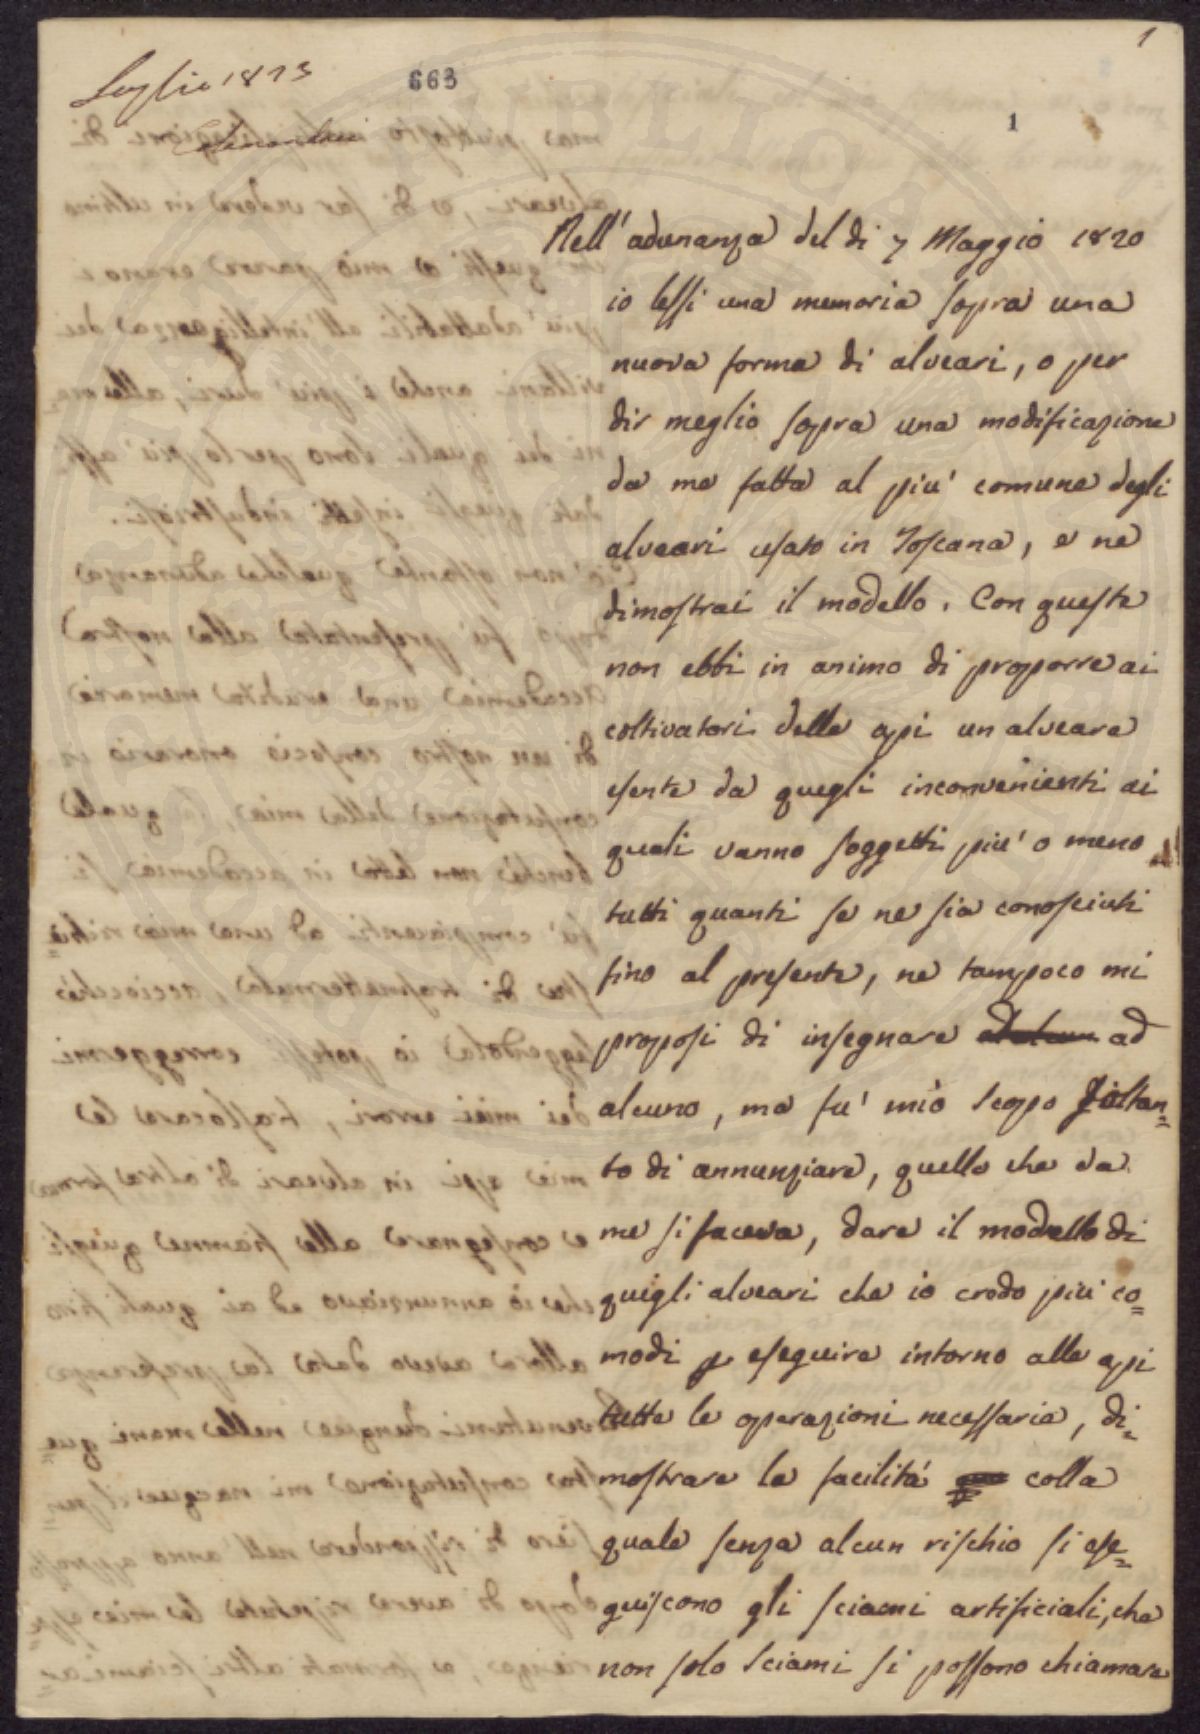 1
Luglio 1823
663
1
Nell' adunanza del di 7 Maggio 1820
io lessi una memoria sopra una
nuova forma di alveari, o per
dir meglio sopra una modificazione
da me fatta al piu' comune degli
alveari usato in Toscana, e ne
dimostrai il modello. Con questa
non ebbi in animo di proporre ai
coltivatori delle api un alveare
esente da quegli inconvenienti ai
quali vanno soggetti piu' o meno
tutti quanti se ne sia conosciuti
fino al presente, ne tampoco mi
proposi di insegnare ad
alcuno, ma fu' mio scopo soltan=
to di annunziare, quello che da
me si faceva, dare il modello di
quegli alveari che io credo piu' co=
modi p eseguire intorno alle api
tutte le operazioni necessarie, di=
mostrare la facilitá colla
quale senza alcun rischio si ese=
guiscono gli sciami artificiali, che
non solo sciami si possono chiamare